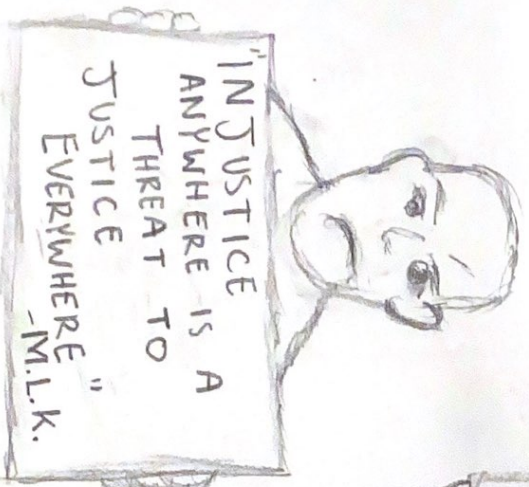 "INJUSTICE
ANYWHERE IS A
THREAT TO
JUSTICE
EVERYWHERE"
-M.L.K.